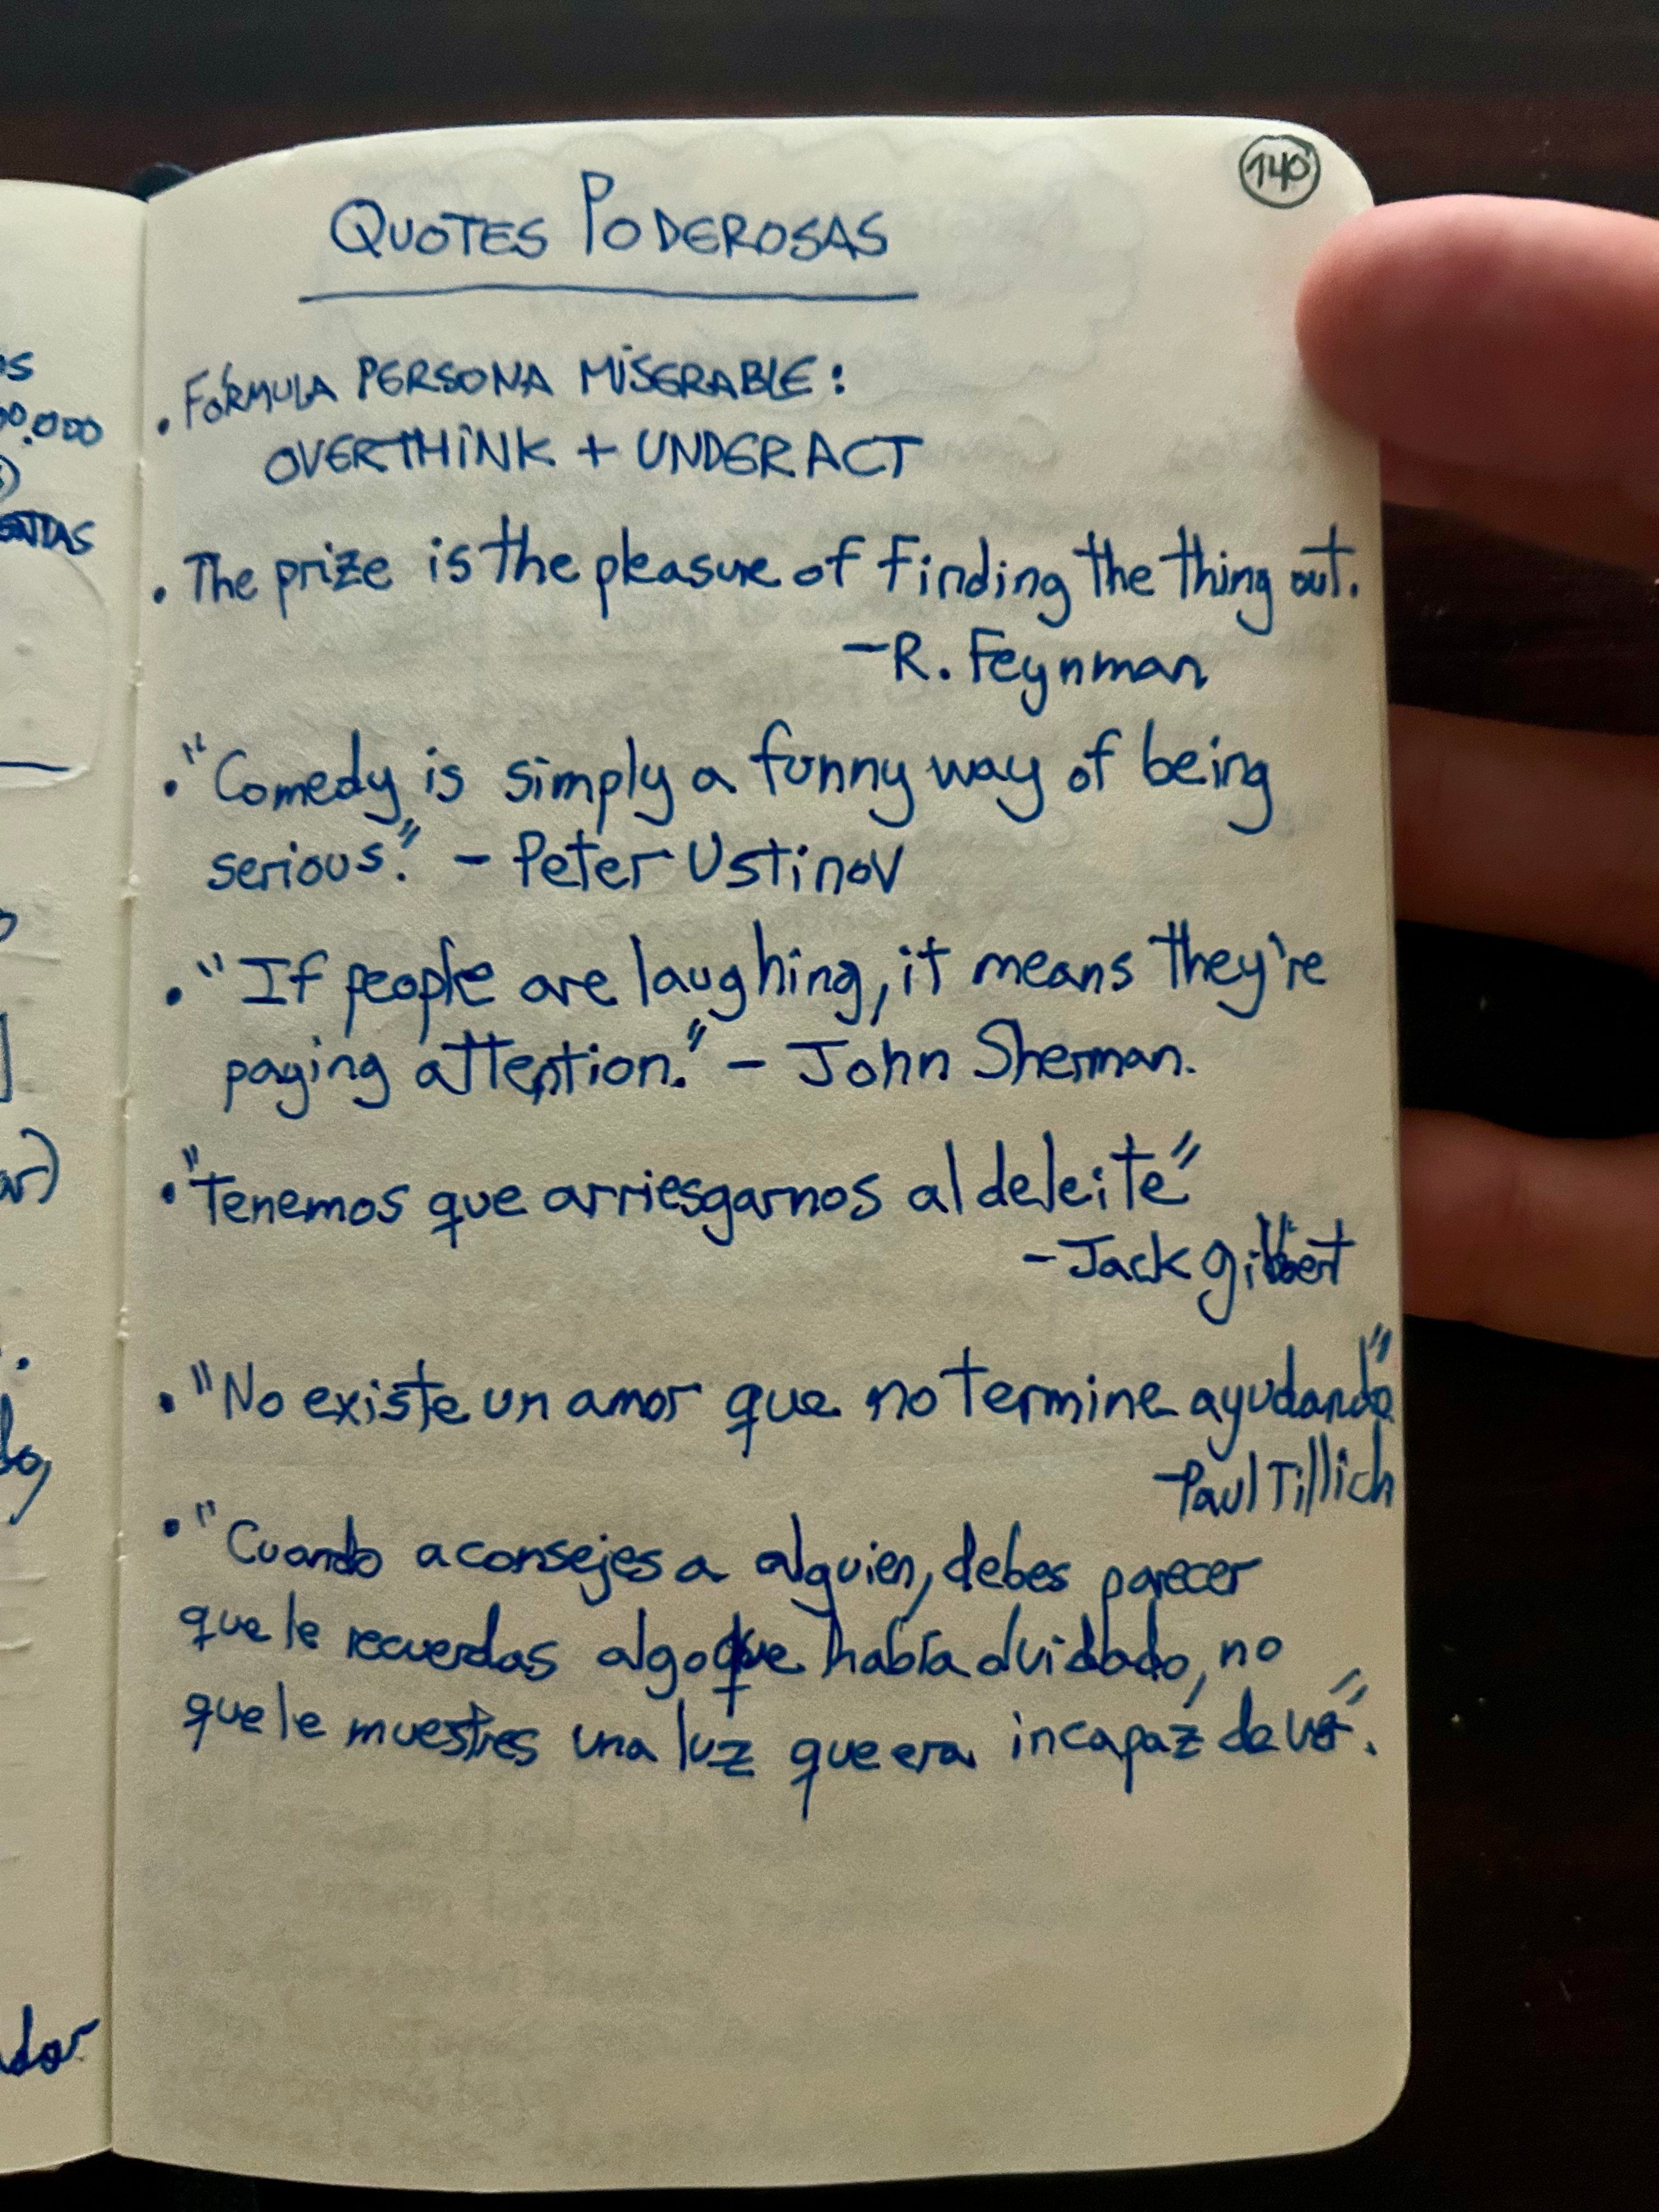 140
QUOTES PODEROSAS
• FÓRMULA PERSONA MISERABLE:
OVERTHINK + UNDERACT
• The prize is the pleasure of finding the thing out.
- R. Feynman
• "Comedy is simply a funny way of being
serious." - Peter Ustinov
• "If people are laughing, it means they're
paying attention." - John Sherman.
• "Tenemos que arriesgarnos al deleite"
- Jack Gilbert
• "No existe un amor que no termine ayudando"
- Paul Tillich
• "Cuando aconsejes a alguien, debes parecer
que le recuerdas algo que había olvidado, no
que le muestres una luz que era incapaz de ver".
00.000